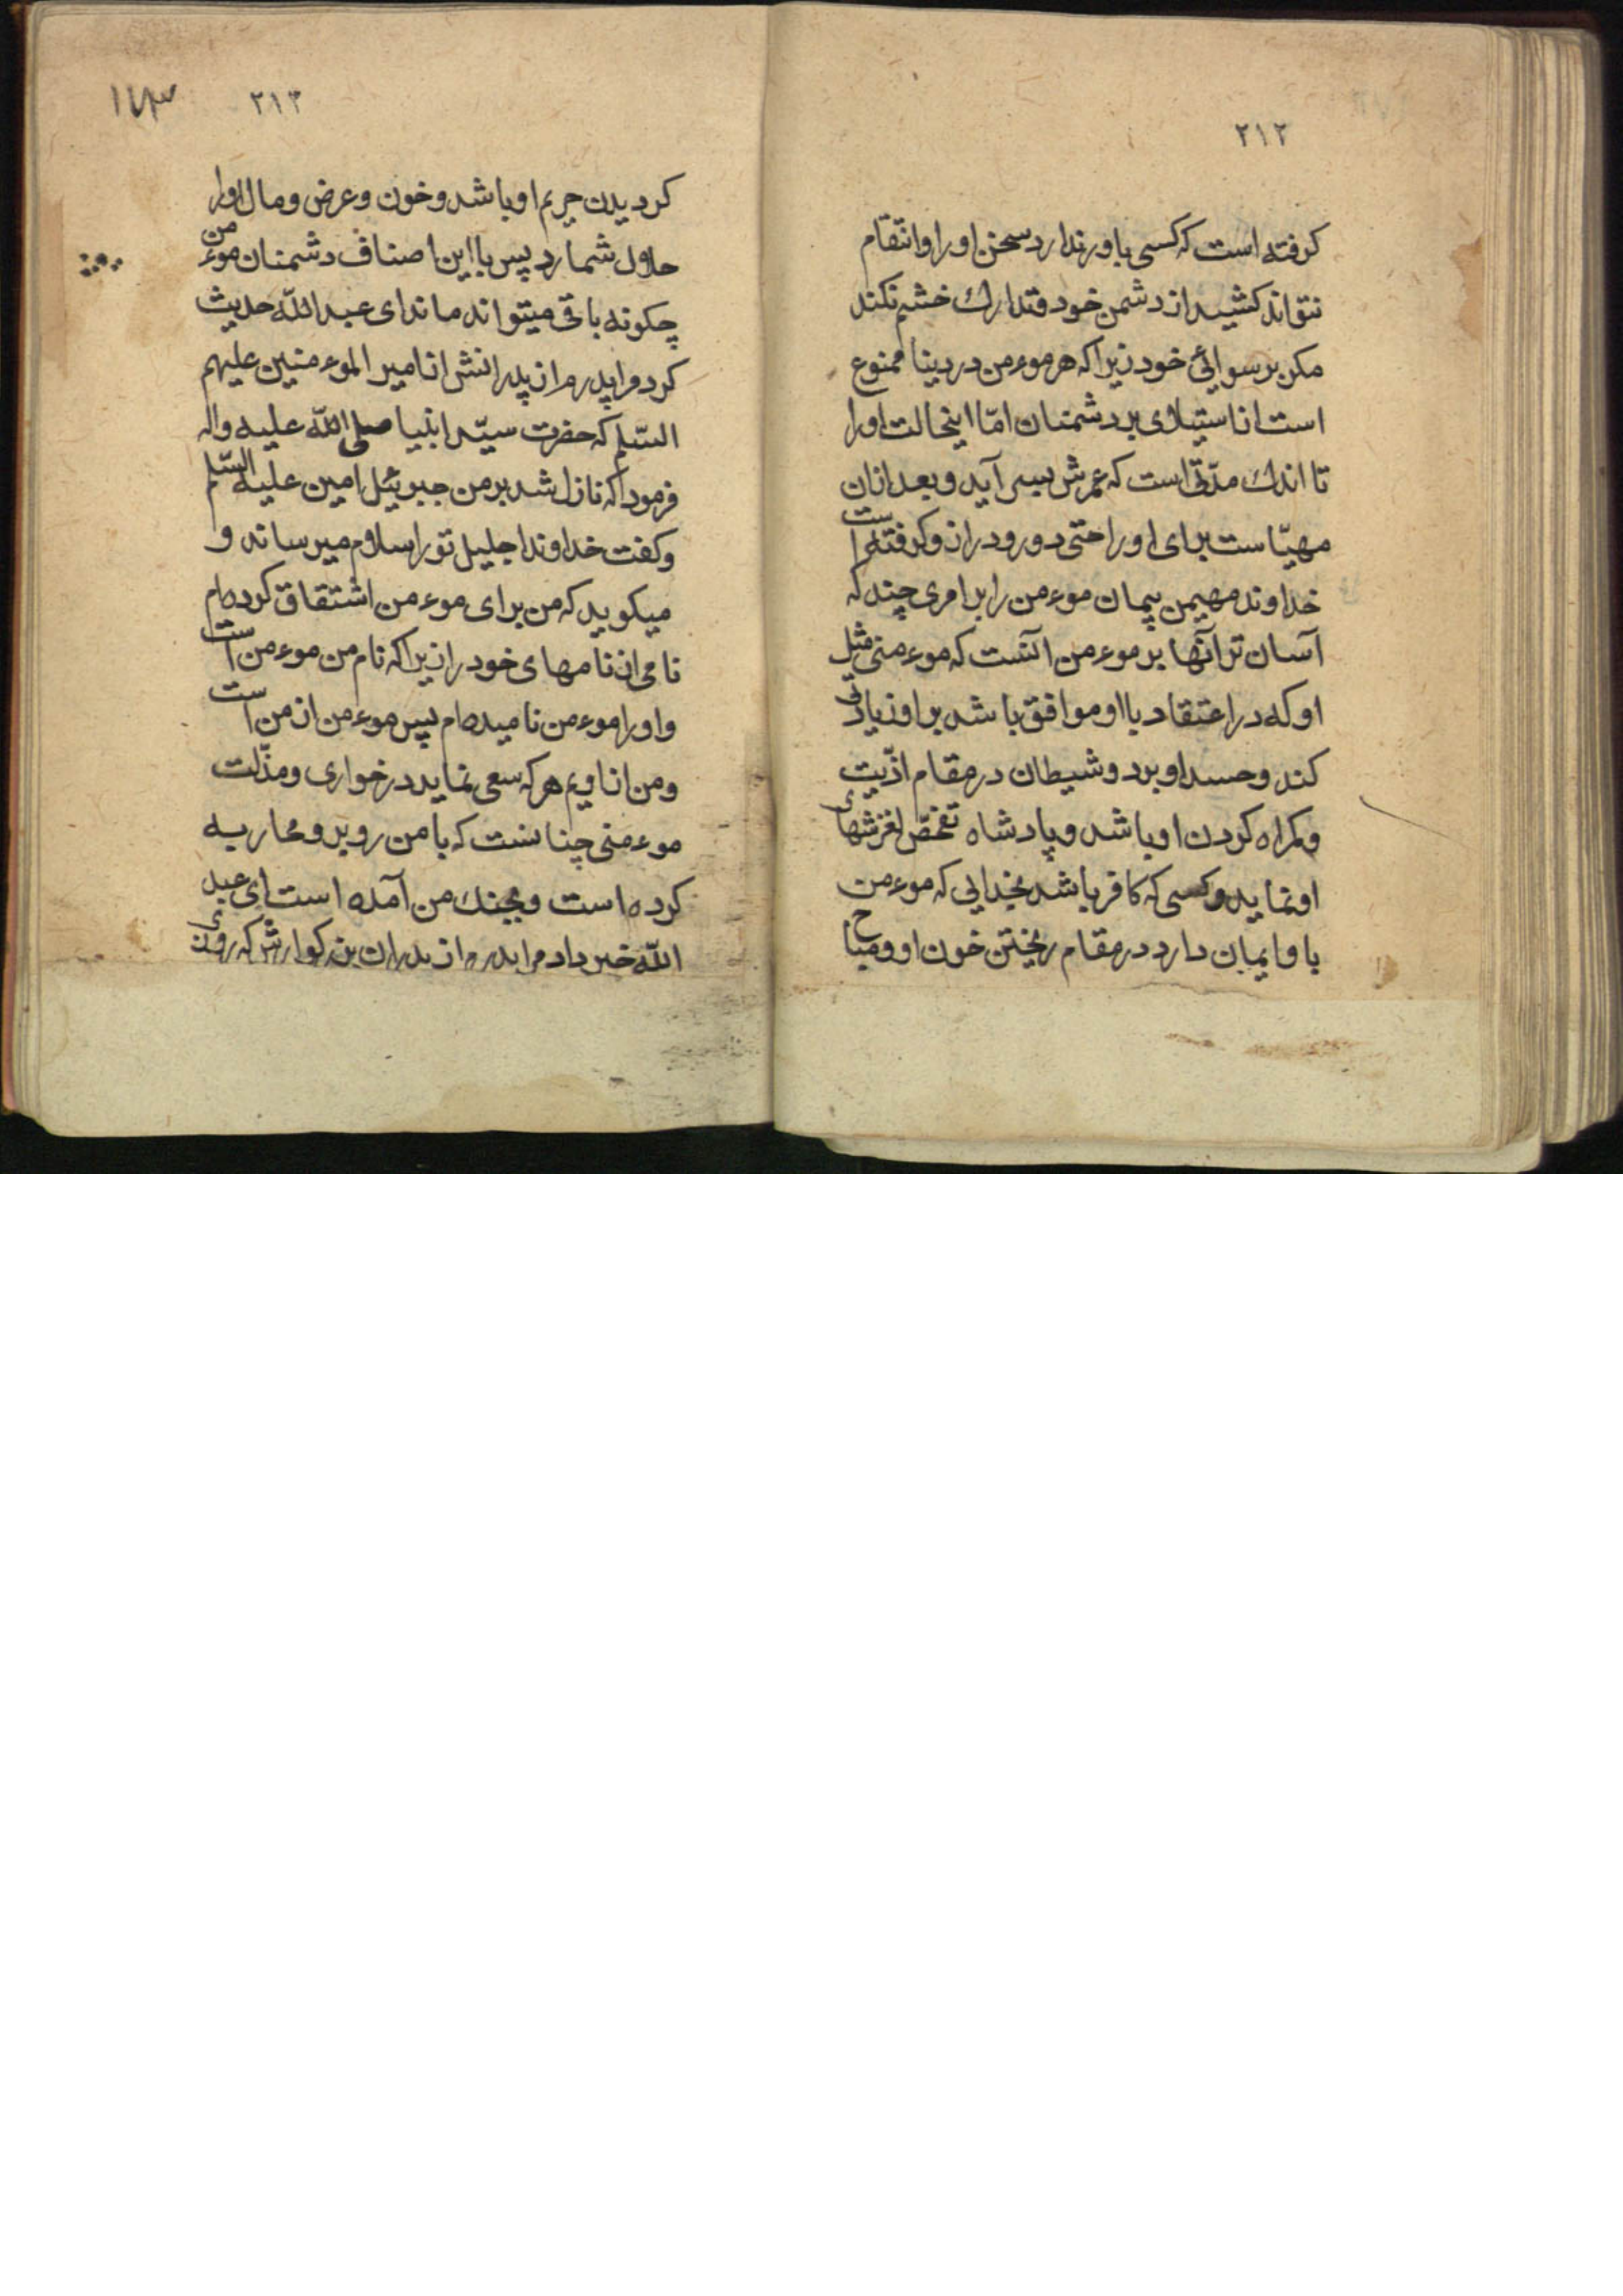 ٢١٢
كرفته است كه كسى باور ندارد سخن او را و انتقام
نتواند كشيد از دشمن خود و تدارك خشم نكند
مكن برسوائى خود زيرا كه هر موءمن در دنيا ممنوع
است از استيلاى بر دشمنان امّا اينحالت او را
تا اندك مدّتى است كه عمرش بسر آيد و بعد از آن
مهيّاست براى او راحتى دور و دراز و كرفته است
خداوند مهيمن پيمان موءمن را بر امرى چند كه
آسان تر آنها بر موءمن آنست كه موءمنى مثل
او كه در اعتقاد با او موافق باشد بر او زيادتى
كند و حسد او برد و شيطان در مقام اذّيت
و كمراه كردن او باشد و پادشاه تفحّص لغزشهاى
او نمايد و كسى كه كافر باشد بخدايى كه موءمن
باو ايمان دارد در مقام ريختن خون او و مباح
٢١٣ ١٤٣
كرديدن حريم او باشد و خون و عرض و مال او را
حلال شمارد پس با اين اصناف دشمنان موءمن
چكونه باقى ميتواند ماند اى عبد اللّه حديث
كرد مرا پدرم از پدرانش از امير الموءمنين عليهم
السّلم كه حضرت سيّد انبيا صلى اللّه عليه واله
فرمود كه نازل شد بر من جبرئيل امين عليه السّلم
و كفت خداوند جليل تو را سلام ميرساند و
ميكويد كه من براى موءمن اشتقاق كرده‌ام
نامى از نامهاى خود را زيرا كه نام من موءمن است
و او را موءمن ناميده‌ام پس موءمن از من است
و من از اويم هر كه سعى نمايد در خوارى و مذّلت
موءمنى چنانست كه با من روبرو محاربه
كرده است و بجنك من آمده است اى عبد
اللّه خبر داد مرا پدرم از پدران بزركوارش كه روزى